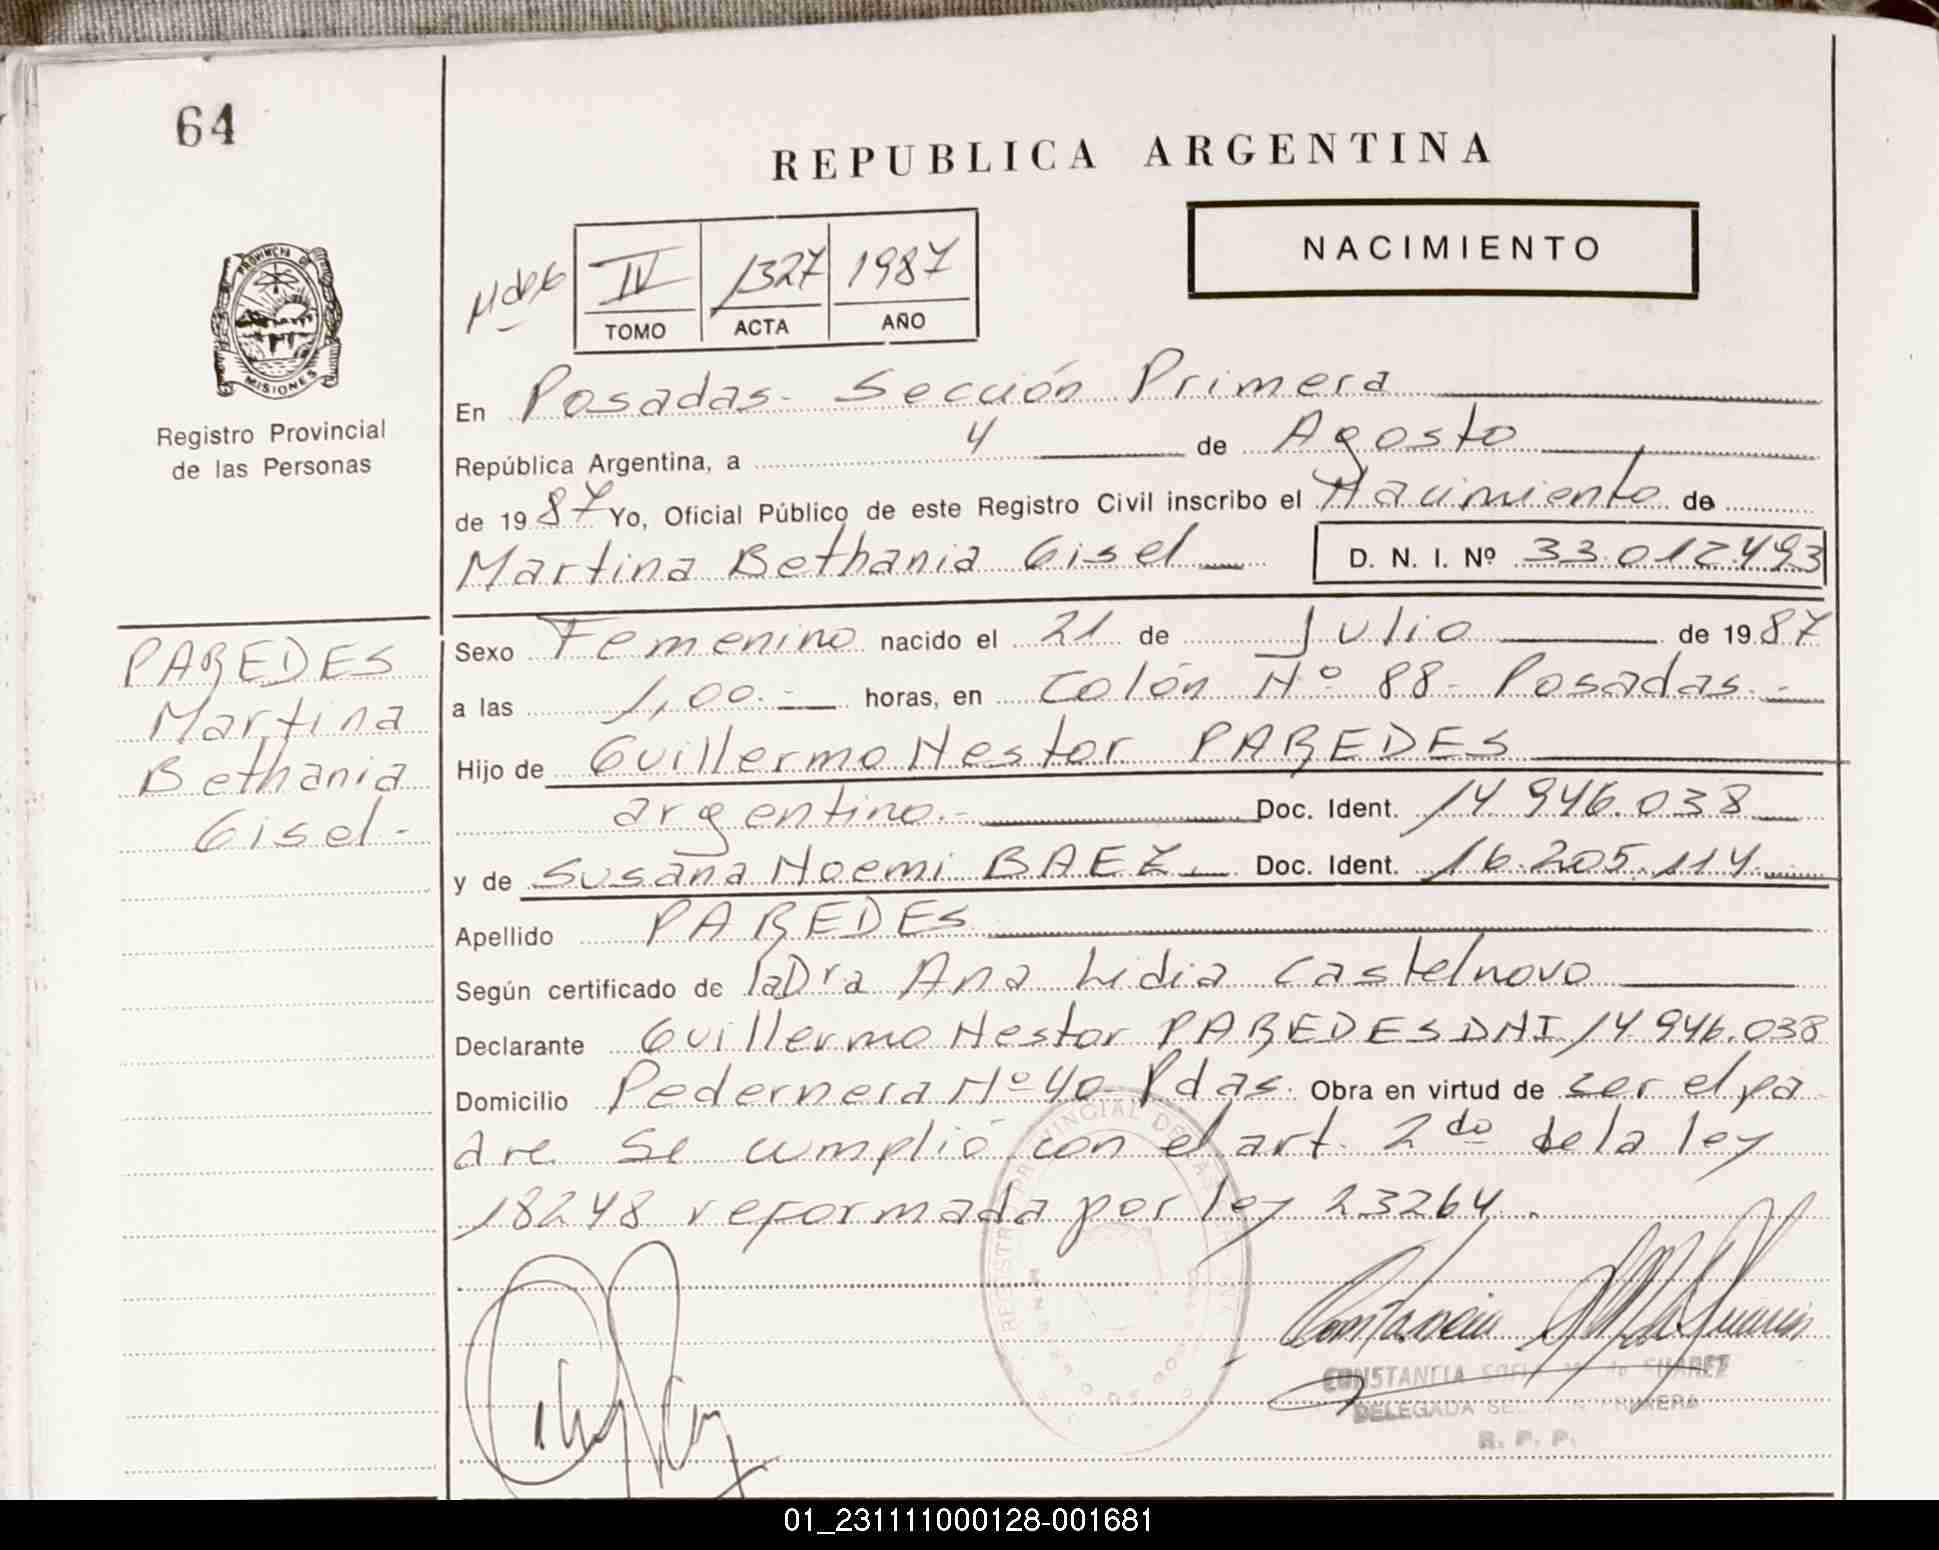 64
REPUBLICA ARGENTINA
NACIMIENTO
IV 1327 1987
TOMO ACTA AÑO
PROVINCIA DE
MISIONES
Registro Provincial
de las Personas
En Posadas. Sección Primera
República Argentina, a 4 de Agosto
de 1987 Yo, Oficial Público de este Registro Civil inscribo el Nacimiento de
Martina Bethania Gisel D. N. I. Nº 33.012.493
PAREDES
Martina
Bethania
Gisel.-
Sexo Femenino nacido el 21 de Julio de 1987
a las 1,00.- horas, en Colón Nº 88- Posadas.-
Hijo de Guillermo Nestor PAREDES
argentino.- Doc. Ident. 14.946.038
y de Susana Noemi BAEZ Doc. Ident. 16.205.114.
Apellido PAREDES
Según certificado de la Dra Ana Lidia Castelnovo
Declarante Guillermo Nestor PAREDES DNI 14.946.038
Domicilio Pedernera Nº 40 Pdas. Obra en virtud de ser el pa
dre. Se cumplió con el art. 2do de la ley
18248 reformada por ley 23264.
CONSTANCIA SOFIA de SUAREZ
DELEGADA SECCION PRIMERA
R. P. P.
01_231111000128-001681